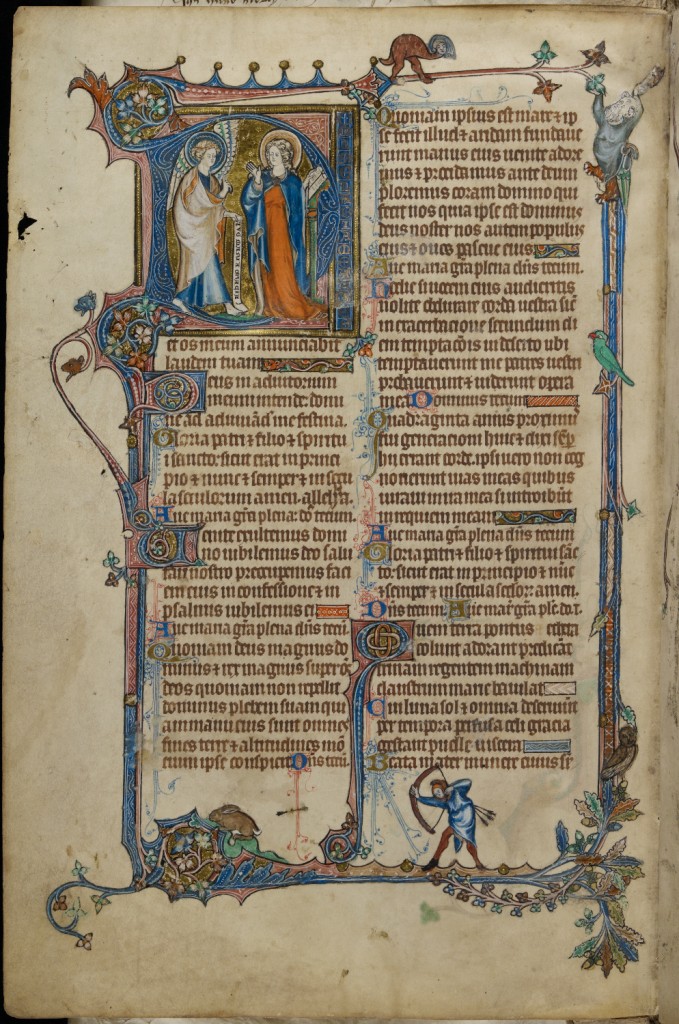 et os meum annunciabit
laudem tuam
Deus in adiutorium
meum intende: domi
ne ad adiuuand̄ me festina.
Gloria patri ⁊ filio ⁊ spiritu
i sancto: sicut erat in princi
pio ⁊ nunc ⁊ semper ⁊ in secu
la seculorum amen. all
Aue maria gr̄a plena: dn̄s tecum.
Uenite exultemus domi
no iubilemus deo salu
tari nostro preocupemus faci
em eius in confessione ⁊ in
psalmis iubilemus ei
Aue maria gr̄a plena dn̄s tecū.
Quoniam deus magnus do
minus ⁊ rex magnus super ōs
deos quoniam non repellit
dominus plebem suam qui
a in manu eius sunt omnes
fines terre ⁊ altitudines mō
cium ipse conspicit Dn̄s tecū.
Quoniam ipsius est mare ⁊ ip
se fecit illud ⁊ aridam fundaue
runt manus eius uenite adore
mus ⁊ procedamus ante deum
ploremus coram domino qui
fecit nos quia ipse est dominus
deus noster nos autem populus
eius ⁊ oues pascue eius
Aue maria gr̄a plena dn̄s tecum.
Hodie si uocem eius audieritis
nolite obdurare corda uestra sic̄
in exacerbacione secundum di
em temptacōis in deserto ubi
temptauerunt me patres uestri
probauerunt ⁊ uiderunt opera
mea Dominus tecum
Quadraginta annis proximꝰ
fui generacioni huic ⁊ dixi semp̄
hii errant corde. ipsi uero non cog
nouerunt uias meas quibus
iuraui in ira mea si introibūt
in requiem meam
Aue maria gr̄a plena dn̄s tecum
Gloria patri ⁊ filio ⁊ spiritui sāc
to: sicut erat in principio ⁊ nūc
⁊ semper ⁊ in secula sclor̄: amen.
Dn̄s tecum. Aue mar̄ gr̄a ple: do. t.
Quem terra pontus ethera
colunt adorant predicāt
trinam regentem machinam
claustrum marie baiulat
Cui luna sol ⁊ omnia deseruūt
per tempora perfusa celi gracia
gestant puelle uiscera
Beata mater munere cuius sr̄